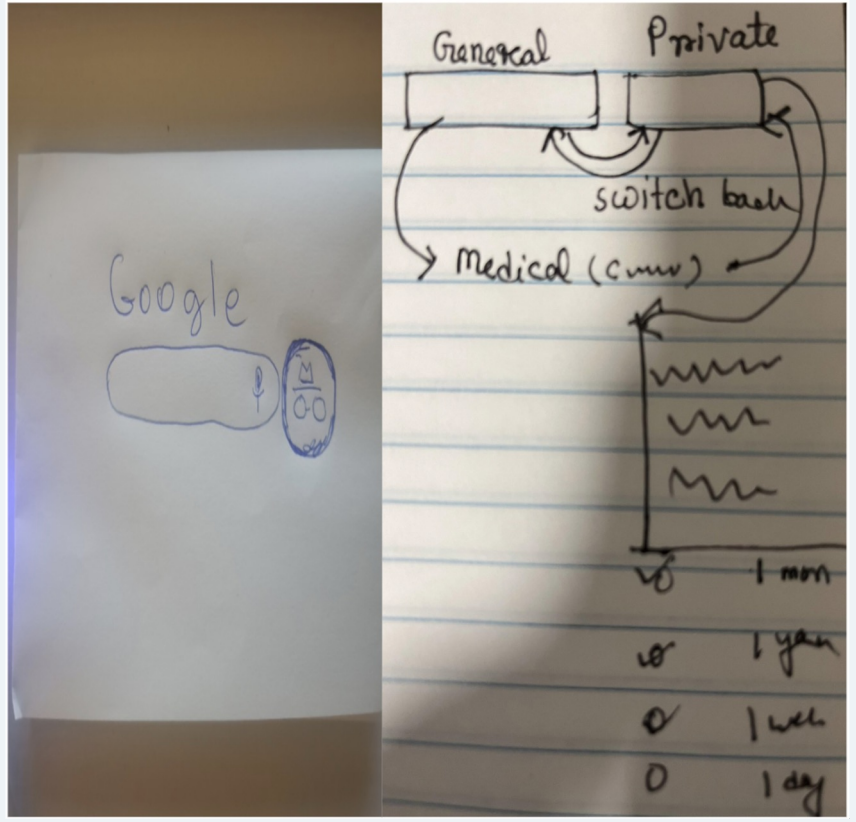 Google
General Private
switch back
Medical (
1 mon
1 year
1 week
1 day